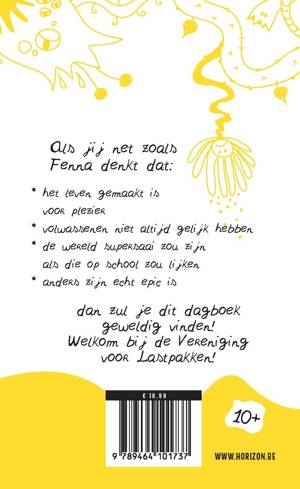 Als jij net zoals
Fenna denkt dat:
* het leven gemaakt is
voor plezier
* volwassenen niet altijd gelijk hebben
* de wereld supersaai zou zijn
als die op school zou lijken
* anders zijn echt epic is
dan zul je dit dagboek
geweldig vinden!
Welkom bij de Vereniging
voor Lastpakken!
€ 16.99
9 789464 101737
10+
WWW.HORIZON.BE